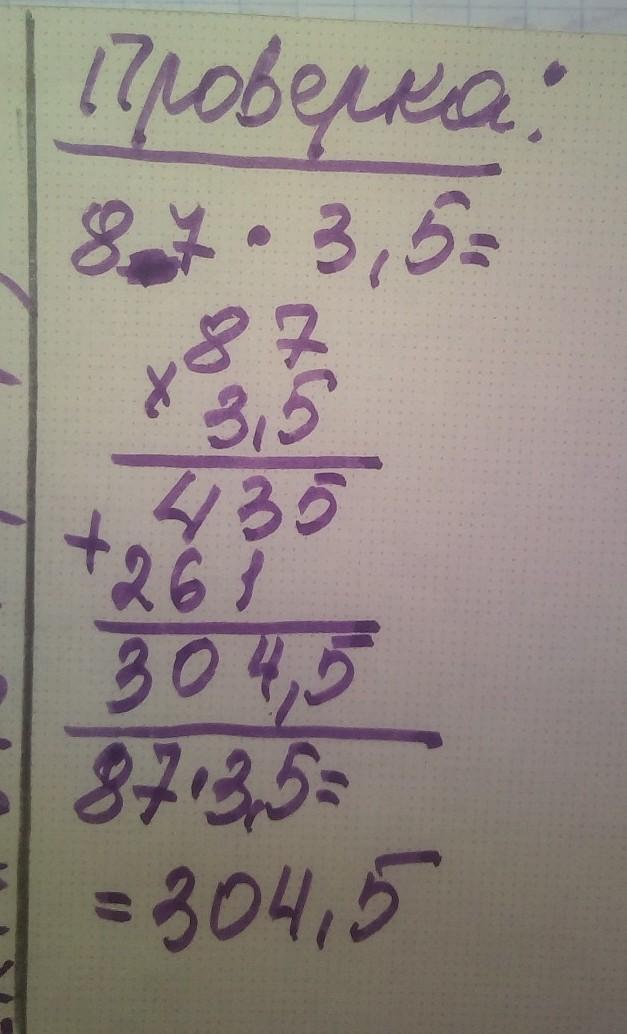 Проверка:
87 · 3,5=
87
× 3,5
435
+ 261
304,5
87·3,5=
=304,5